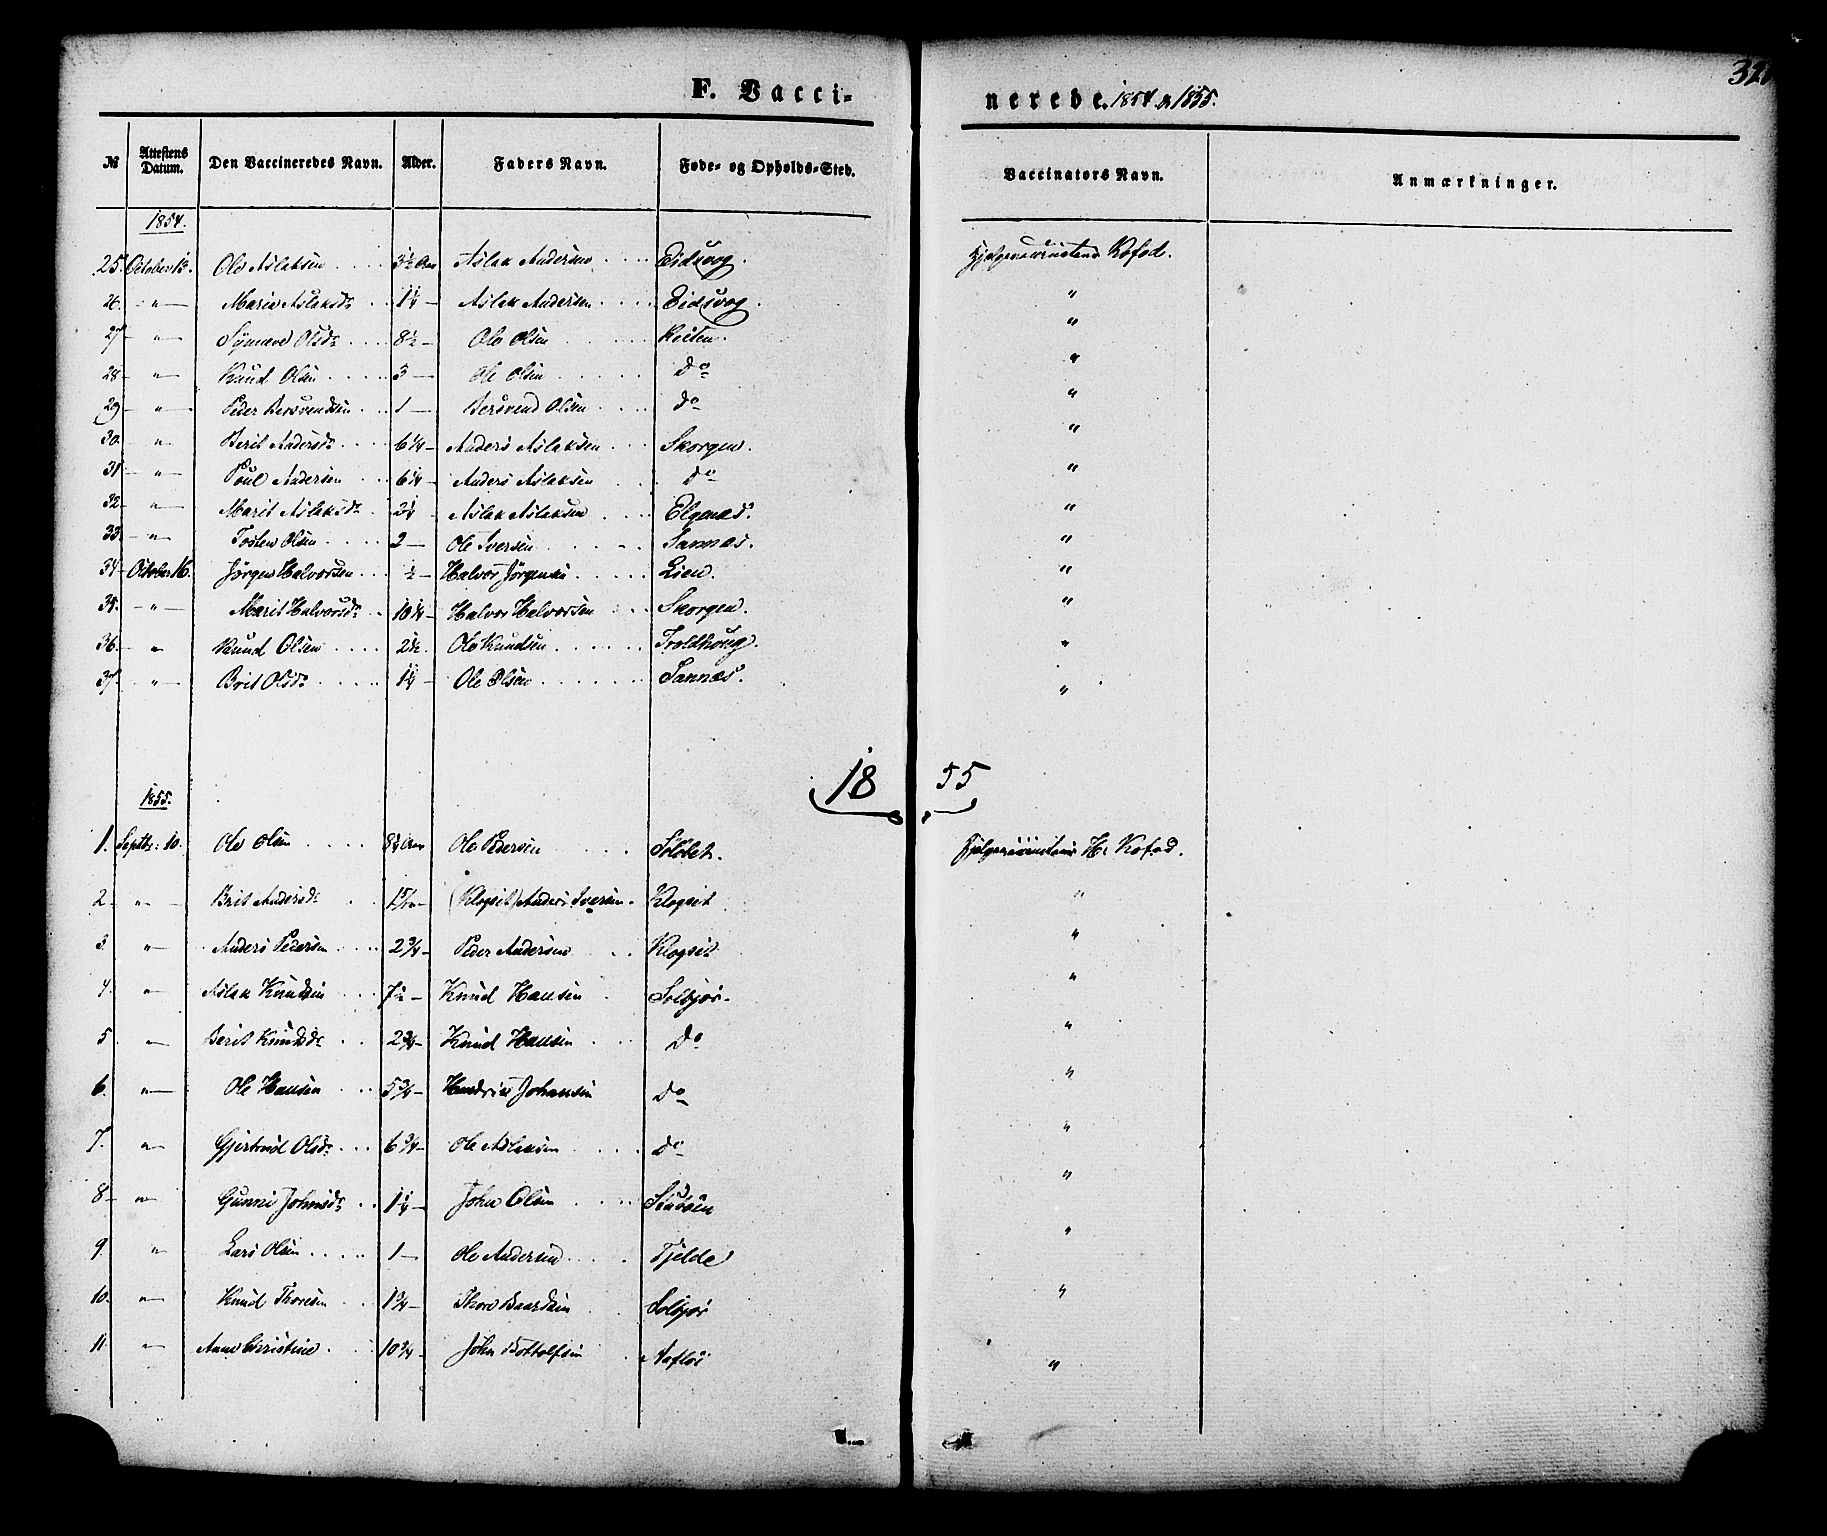 F. Vacci-
nerede. 1854 & 1855.
№ Attestens Datum. Den Vaccineredes Navn. Alder. Faders Navn. Føde- og Opholds-Sted. Vaccinators Navn. Anmærkninger.
1854.
25. October Ole Aslaksen 3½ Aar Aslak Andersen Eidsvog. Kofod.
26. " Marie Aslaksdr 1¼ Aslak Andersen Eidsvog. "
27 " Synneve Olsdr 8½ Ole Olsen "
28 " Knud Olsen 3 Ole Olsen do "
29 " Peder Bersvendsen 1 Bersvend Olsen do "
30. " Berit Andersdr 6¼ Anders Aslaksen Skorgen. "
31 " Poul Andersen 6¼ Anders Aslaksen do "
32 " Marit Aslaksdr 2¼ Aslak Aslaksen Elgenæs. "
33. " Tosten Olsen 2 Ole Iversen Sannæs. "
34 October 16. Jørgen Halvorsen ½ Halvor Jørgensen Lien. "
35. " Marit Halvorsdr 10¼ Halvor Halvorsen Skorgen. "
36. " Knud Olsen 2½ Ole Knudsen Troldhoug. "
37. " Brit Olsdr 1¼ Ole Olsen Sannæs. "
1855
1855.
1. Septbr: 10. Ole Olsen 8½ Aar Ole Pedersen H. Kofod.
2. " Brit Andersdr (Klogset) Anders Iversen. Klogset "
3. " Anders Pedersen 2¾ Peder Andersen Klogset "
4. " Aslak Knudsen 7½ Knud Hansen Solsjør. "
5 " Berit Knudsdr 2¾ Knud Hansen Do "
6. " Ole Hansen 5¾ Johansen Do "
7. " Gjertrud Olsdr 6¾ Ole Aslaksen do "
8 " Gunni Johnsdr 1¼ John Olsen "
9. " Lars Olsen 1 Ole Andersen Tjelde "
10. " Knud Thoresen 1¾ Thore Baardsen Solsjør "
11. " Anne Christine 10¾ John Bottolfsen "